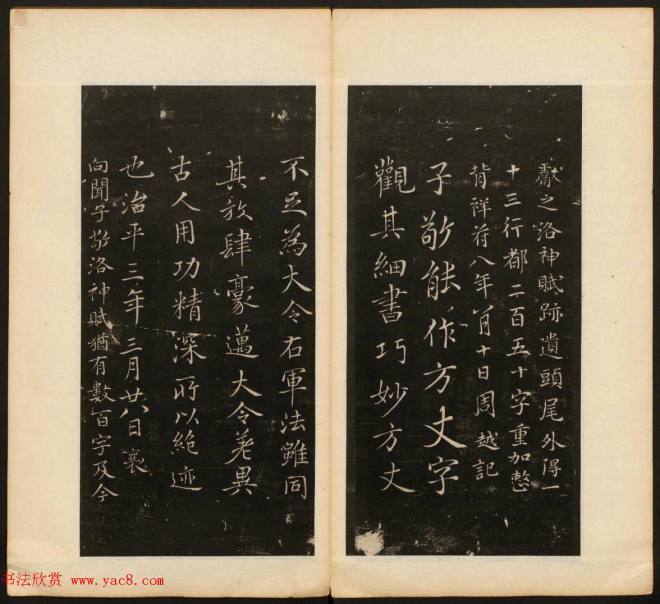 獻之洛神賦跡遺頭尾外得一
十三行都二百五十字重加整
背祥符八年八月十日周越記
子敬能作方丈字
觀其細書巧妙方丈
不足為大令右軍法雖同
其放肆豪邁大令差異
古人用功精深所以絕迹
也治平三年三月廿八日襄
向聞子敬洛神賦猶有數百字及今
书法欣赏 www.yac8.com